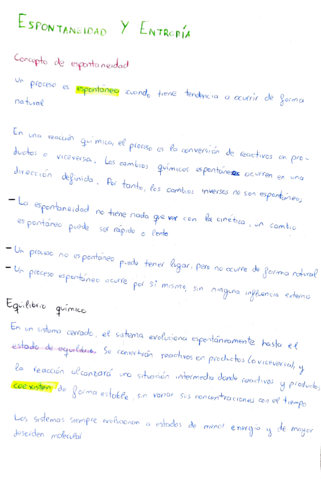 ESPONTANEIDAD Y ENTROPÍA
Concepto de espontaneidad
Un proceso es espontáneo cuando tiene tendencia a ocurrir de forma
natural
En una reacción química, el proceso es la conversión de reactivos en pro-
ductos o viceversa. Los cambios químicos espontáneos ocurren en una
dirección definida. Por tanto, los cambios inversos no son espontáneos
- La espontaneidad no tiene nada que ver con la cinética, un cambio
espontáneo puede ser rápido o lento
- Un proceso no espontáneo puede tener lugar, pero no ocurre de forma natural
- Un proceso espontáneo ocurre por sí mismo, sin ninguna influencia externa
Equilibrio químico
En un sistema cerrado, el sistema evoluciona espontáneamente hasta el
estado de equilibrio. Se convertirán reactivos en productos (o viceversa), y
la reacción alcanzará una situación intermedia donde reactivos y productos
coexisten de forma estable, sin variar sus concentraciones con el tiempo
Los sistemas siempre evolucionan a estados de menor energía y de mayor
desorden molecular